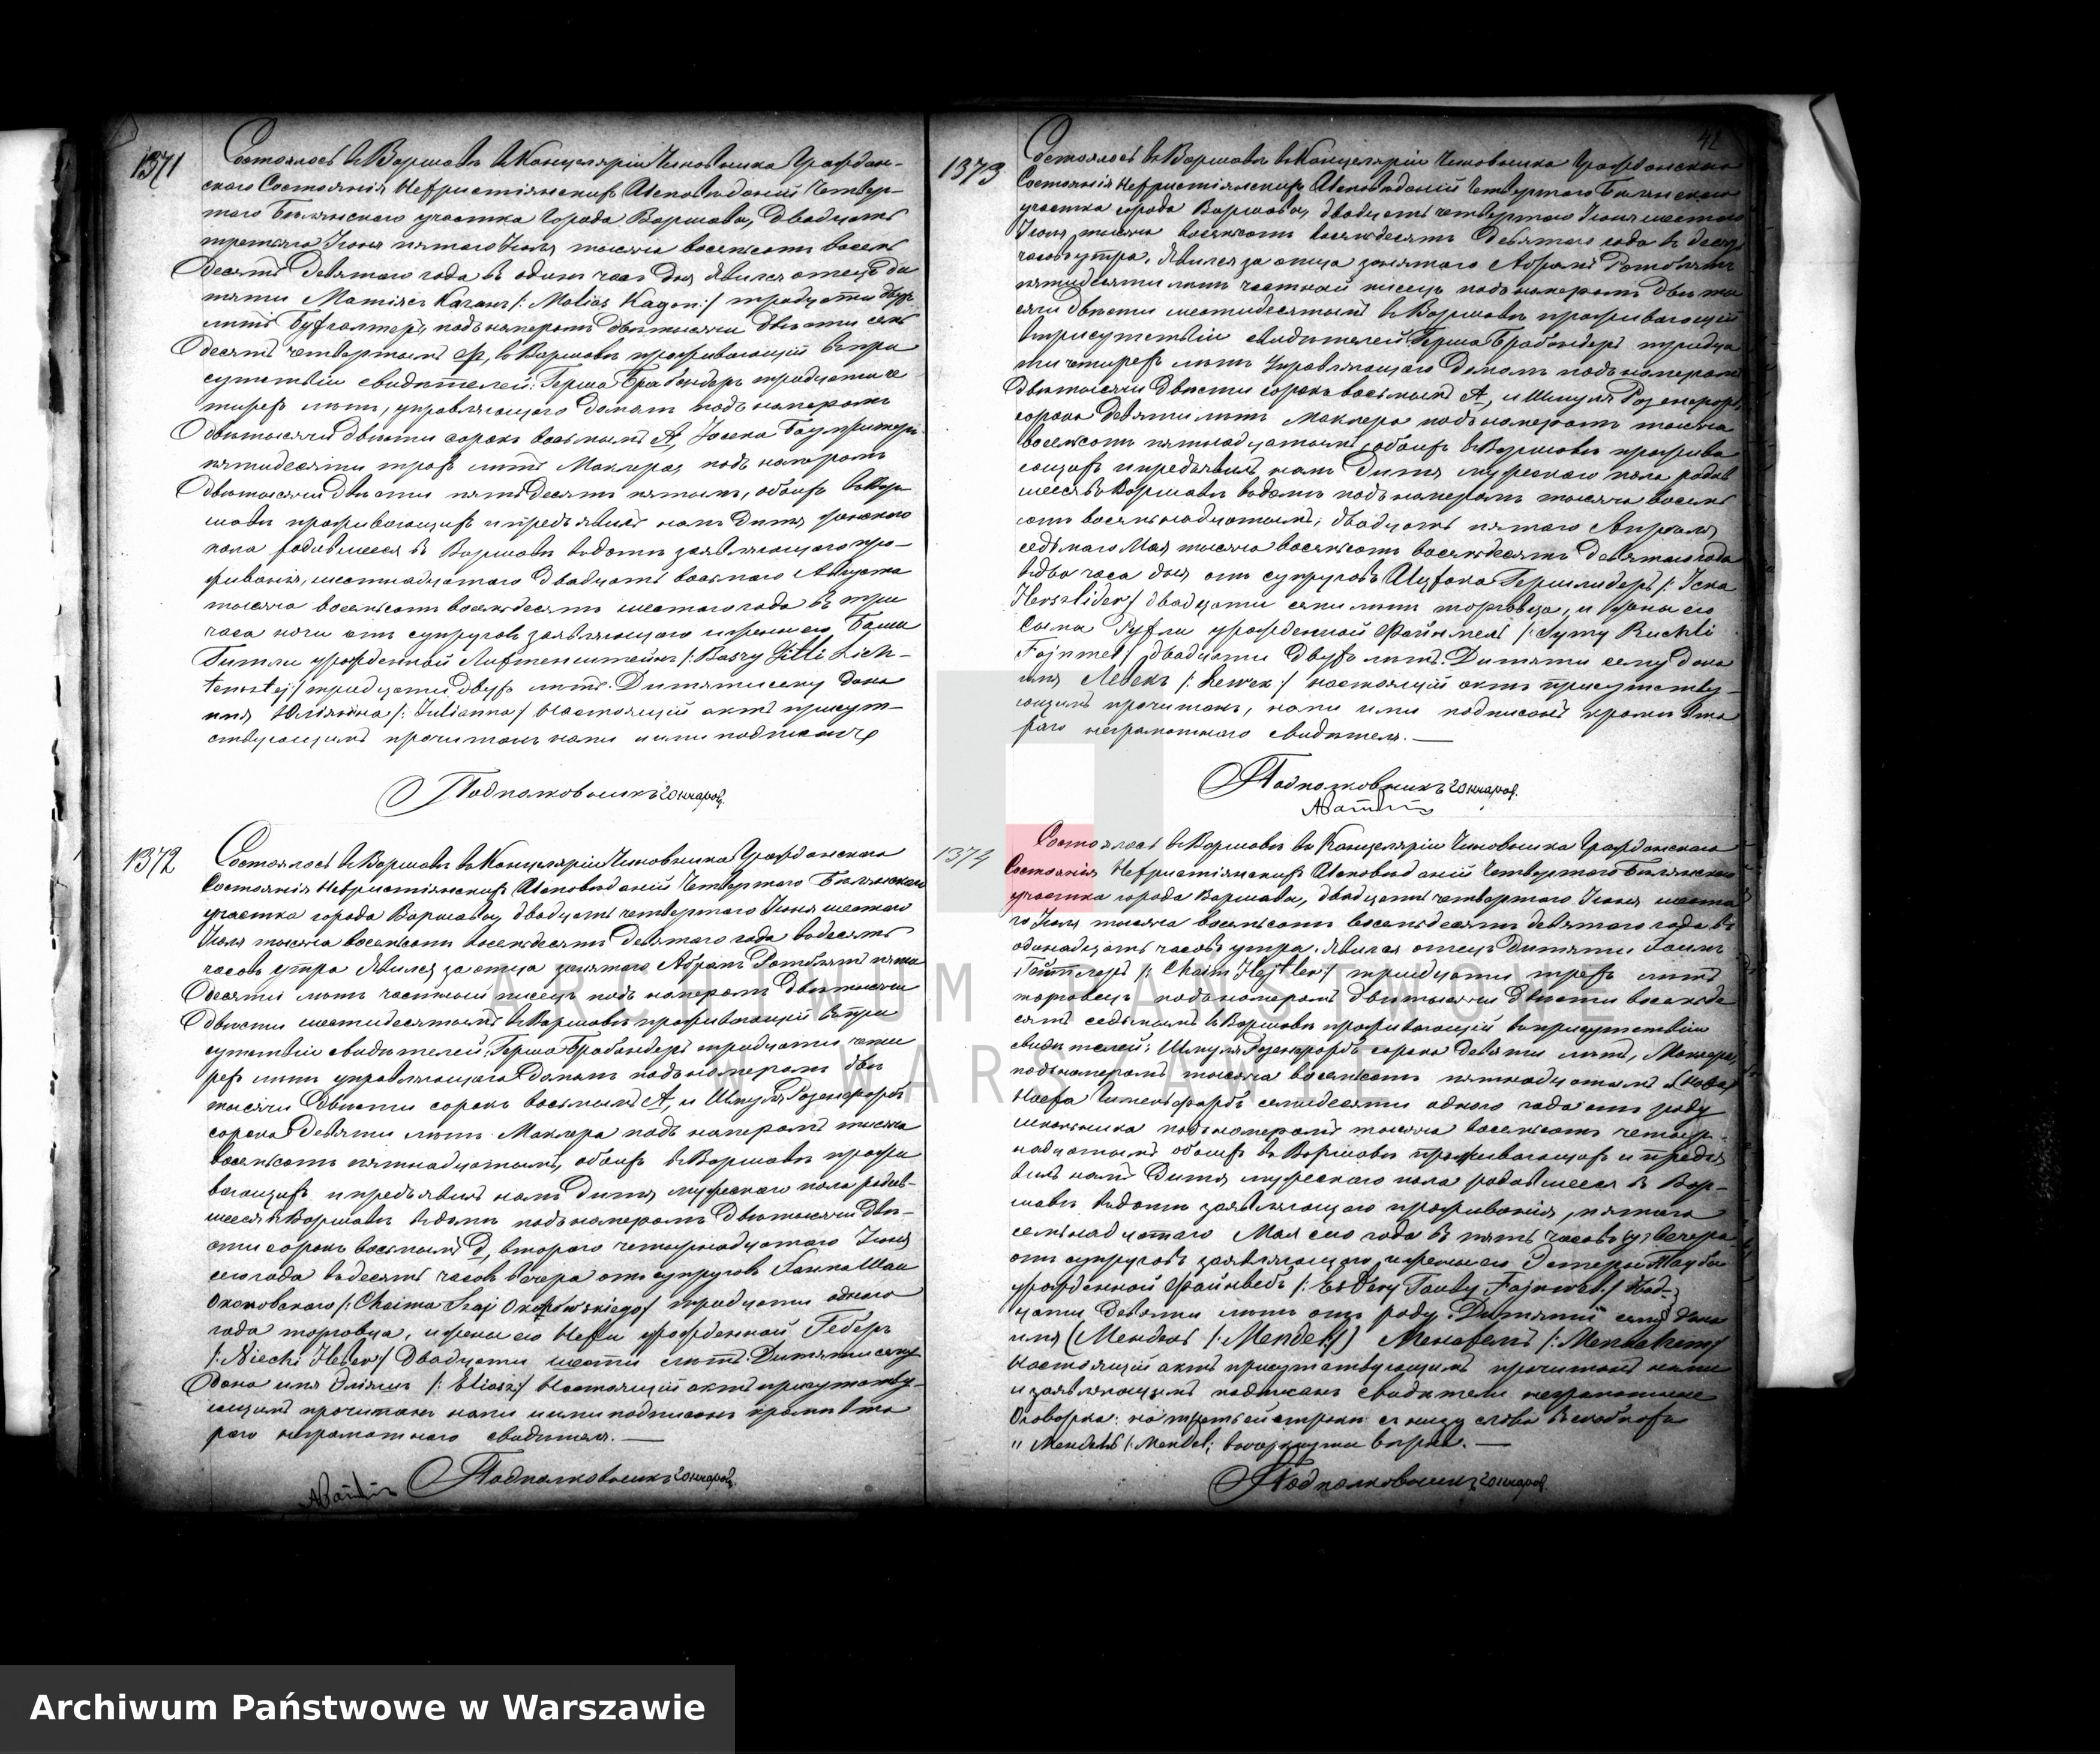 1371
Состоялось въ Варшавѣ въ Канцеляріи Чиновника Граждан-
скаго Состоянія Нехристіанскихъ Исповѣданій Четвер-
таго Билянскаго участка города Варшавы, Двадцать
третьяго Іюня пятаго Іюля тысяча восемьсотъ восемь
десятъ девятаго года въ одинъ часъ дня. Явился отецъ ди
тяти Матіясъ Каганъ /: Matias Kagan :/ тридцати двухъ
лѣтъ Бухгалтеръ, подъ номеромъ двѣ тысячи двѣсти семь
десятъ четвертымъ въ Варшавѣ проживающій въ при
сутствіи свидѣтелей: Герша Брабандеръ тридцати че
тырехъ лѣтъ, управляющаго домомъ подъ номеромъ
двѣ тысячи двѣсти сорокъ восьмымъ А, Іосека
пятидесяти трехъ лѣтъ Маклера, подъ номеромъ
двѣ тысячи двѣсти пятьдесятъ пятымъ, обоихъ въ Вар-
шавѣ проживающихъ и предъявилъ намъ дитя женскаго
пола родившееся въ Варшавѣ въ домѣ заявляющаго про-
живанія, шестнадцатаго двадцать восьмаго Августа
тысяча восемьсотъ восемьдесятъ шестаго года въ три
часа ночи отъ супруговъ заявляющаго и жены его Баши
Гитли урожденной Лихтенштейнъ /: Baszy Gitli Lich-
tensztej :/ тридцати двухъ лѣтъ. Дитяти сему дано
имя Юліянна /: Julianna :/ Настоящій актъ присут-
ствующимъ прочитанъ нами и ими подписанъ
Подполковникъ Гончаровъ
1372
Состоялось въ Варшавѣ въ Канцеляріи Чиновника Гражданскаго
Состоянія Нехристіанскихъ Исповѣданій Четвертаго Билянскаго
участка города Варшавы, двадцать четвертаго Іюня шестаго
Іюля тысяча восемьсотъ восемьдесятъ девятаго года въ десять
часовъ утра. Явился за отца занятаго Абрамъ Ротблятъ пяти
десяти лѣтъ частный писецъ подъ номеромъ двѣ тысячи
двѣсти шестидесятымъ въ Варшавѣ проживающій въ при
сутствіи свидѣтелей: Герша Брабандеръ тридцати четы
рехъ лѣтъ управляющаго домомъ подъ номеромъ двѣ
тысячи двѣсти сорокъ восьмымъ А, и Шмуля Розенфорбъ
сорока девяти лѣтъ Маклера подъ номеромъ тысяча
восемьсотъ пятнадцатымъ, обоихъ въ Варшавѣ прожи
вающихъ и предъявилъ намъ дитя мужескаго пола родив-
шееся въ Варшавѣ въ домѣ подъ номеромъ двѣ тысячи двѣ-
сти сорокъ восьмымъ Д, втораго четырнадцатаго Іюня
сего года въ десять часовъ вечера отъ супруговъ Хаима Шаи
Околовскаго /: Chaima Szaji :/ тридцати одного
года торговца, и жены его Нехи урожденной Геберъ
/: Niechi Heber :/ двадцати шести лѣтъ. Дитяти сему
дано имя Эліяшъ /: Eliasz :/ Настоящій актъ присутству-
ющимъ прочитанъ нами и ими подписанъ кромѣ вто
раго неграмотнаго свидѣтеля.
Подполковникъ Гончаровъ
42
1373
Состоялось въ Варшавѣ въ Канцеляріи Чиновника Гражданскаго
Состоянія Нехристіанскихъ Исповѣданій Четвертаго Билянскаго
участка города Варшавы, двадцать четвертаго Іюня шестаго
Іюля тысяча восемьсотъ восемьдесятъ девятаго года въ десять
часовъ утра. Явился за отца занятаго Абрамъ Ротблятъ
пятидесяти лѣтъ частный писецъ подъ номеромъ двѣ ты
сячи двѣсти шестидесятымъ въ Варшавѣ проживающій
въ присутствіи свидѣтелей Герша Брабандеръ тридца
ти четырехъ лѣтъ управляющаго домомъ подъ номеромъ
двѣ тысячи двѣсти сорокъ восьмымъ А, и Шмуля Розенфорбъ
сорока девяти лѣтъ Маклера подъ номеромъ тысяча
восемьсотъ пятнадцатымъ, обоихъ въ Варшавѣ прожива
ющихъ и предъявилъ намъ дитя мужескаго пола родив
шееся въ Варшавѣ въ домѣ подъ номеромъ тысяча восемь
сотъ восемьнадцатымъ, двадцать пятаго Апрѣля,
седьмаго Мая тысяча восемьсотъ восемьдесятъ девятаго года
въ два часа дня отъ супруговъ Ицхока Гершлидеръ /: Icka
Herszlider :/ двадцати семи лѣтъ торговца, и жены его
Сымы Рухли урожденной Файнмель /: Symy Ruchli
Fajnmel :/ двадцати двухъ лѣтъ. Дитяти сему дано
имя Левекъ /: Lewek :/ настоящій актъ присутству-
ющимъ прочитанъ, нами и ими подписанъ кромѣ вто
раго неграмотнаго свидѣтеля.
Подполковникъ Гончаровъ
1374
Состоялось въ Варшавѣ въ Канцеляріи Чиновника Гражданскаго
Состоянія Нехристіанскихъ Исповѣданій Четвертаго Билянскаго
участка города Варшавы, двадцать четвертаго Іюня шеста
го Іюля тысяча восемьсотъ восемьдесятъ девятаго года въ
одинадцать часовъ утра. Явился отецъ дитяти Хаимъ
Гейтлеръ /: Chaim Hejtler :/ тридцати трехъ лѣтъ
торговецъ подъ номеромъ двѣ тысячи двѣсти восемьде
сятъ седьмымъ въ Варшавѣ проживающій въ присутствіи
свидѣтелей: Шмуля Розенфорбъ сорока девяти лѣтъ, Маклера,
подъ номеромъ тысяча восемьсотъ пятнадцатымъ и
семидесяти одного года отъ роду
школьника подъ номеромъ тысяча восемьсотъ четыр-
надцатымъ обоихъ въ Варшавѣ проживающихъ и предъя
вилъ намъ дитя мужескаго пола родившееся въ Вар-
шавѣ въ домѣ заявляющаго проживанія, пятаго
семьнадцатаго Мая сего года въ пять часовъ вечера
отъ супруговъ заявляющаго и жены его Эстеры Таубы
урожденной Файнвебъ /: Estery Tauby :/ двад-
цати девяти лѣтъ отъ роду. Дитяти сему дано
имя (Мендель /: Mendel :/) Менахемъ /: Menachem :/
Настоящій актъ присутствующимъ прочитанъ нами
и заявляющимъ подписанъ свидѣтели неграмотные
Оговорка: на третьей строкѣ съ низу слова въ скобкахъ
" Мендель /: Mendel :/ вычеркнуты вѣрно.
Подполковникъ Гончаровъ
ARCHIWUM PAŃSTWOWE
W WARSZAWIE
Archiwum Państwowe w Warszawie